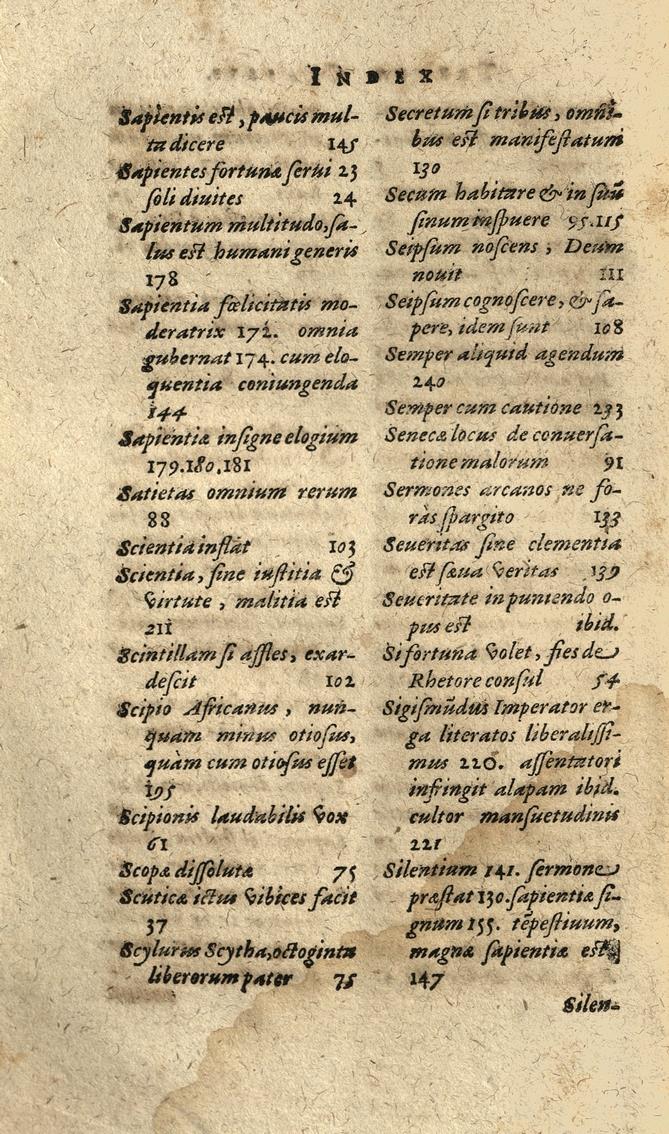 INDEX
Sapientis est, paucis mul-
ta dicere 145
Sapientes fortunæ serui 23
soli diuites 24
Sapientum multitudo, sa-
lus est humani generis
178
Sapientia fœlicitatis mo-
deratrix 172. omnia
gubernat 174. cum elo-
quentia coniungenda
144
Sapientiæ insigne elogium
179.180.181
Satietas omnium rerum
88
Scientia inflat 103
Scientia, sine iustitia &
virtute, malitia est
211
Scintillam si affles, exar-
descit 102
Scipio Africanus, nun-
quam minus otiosus,
quàm cum otiosus esset
195
Scipionis laudabilis vox
61
Scopæ dissolutæ 75
Scuticæ ictus vibices facit
37
Scylurus Scytha, octoginta
liberorum pater 75
Secretum si tribus, omni-
bus est manifestatum
130
Secum habitare & in suũ
sinum inspuere 95.115
Seipsum noscens, Deum
nouit 111
Seipsum cognoscere, & sa-
pere, idem sunt 108
Semper aliquid agendum
240
Semper cum cautione 233
Senecæ locus de conuersa-
tione malorum 91
Sermones arcanos ne fo-
ràs spargito 133
Seueritas sine clementia
est sæua veritas 139
Seueritate in puniendo o-
pus est ibid.
Si fortuna volet, fies de
Rhetore consul 54
Sigismũdus Imperator er-
ga literatos liberalissi-
mus 220. assentatori
infringit alapam ibid.
cultor mansuetudinis
221
Silentium 141. sermone
præstat 130. sapientiæ si-
gnum 155. tẽpestiuum,
magnæ sapientiæ est
147
Silen-